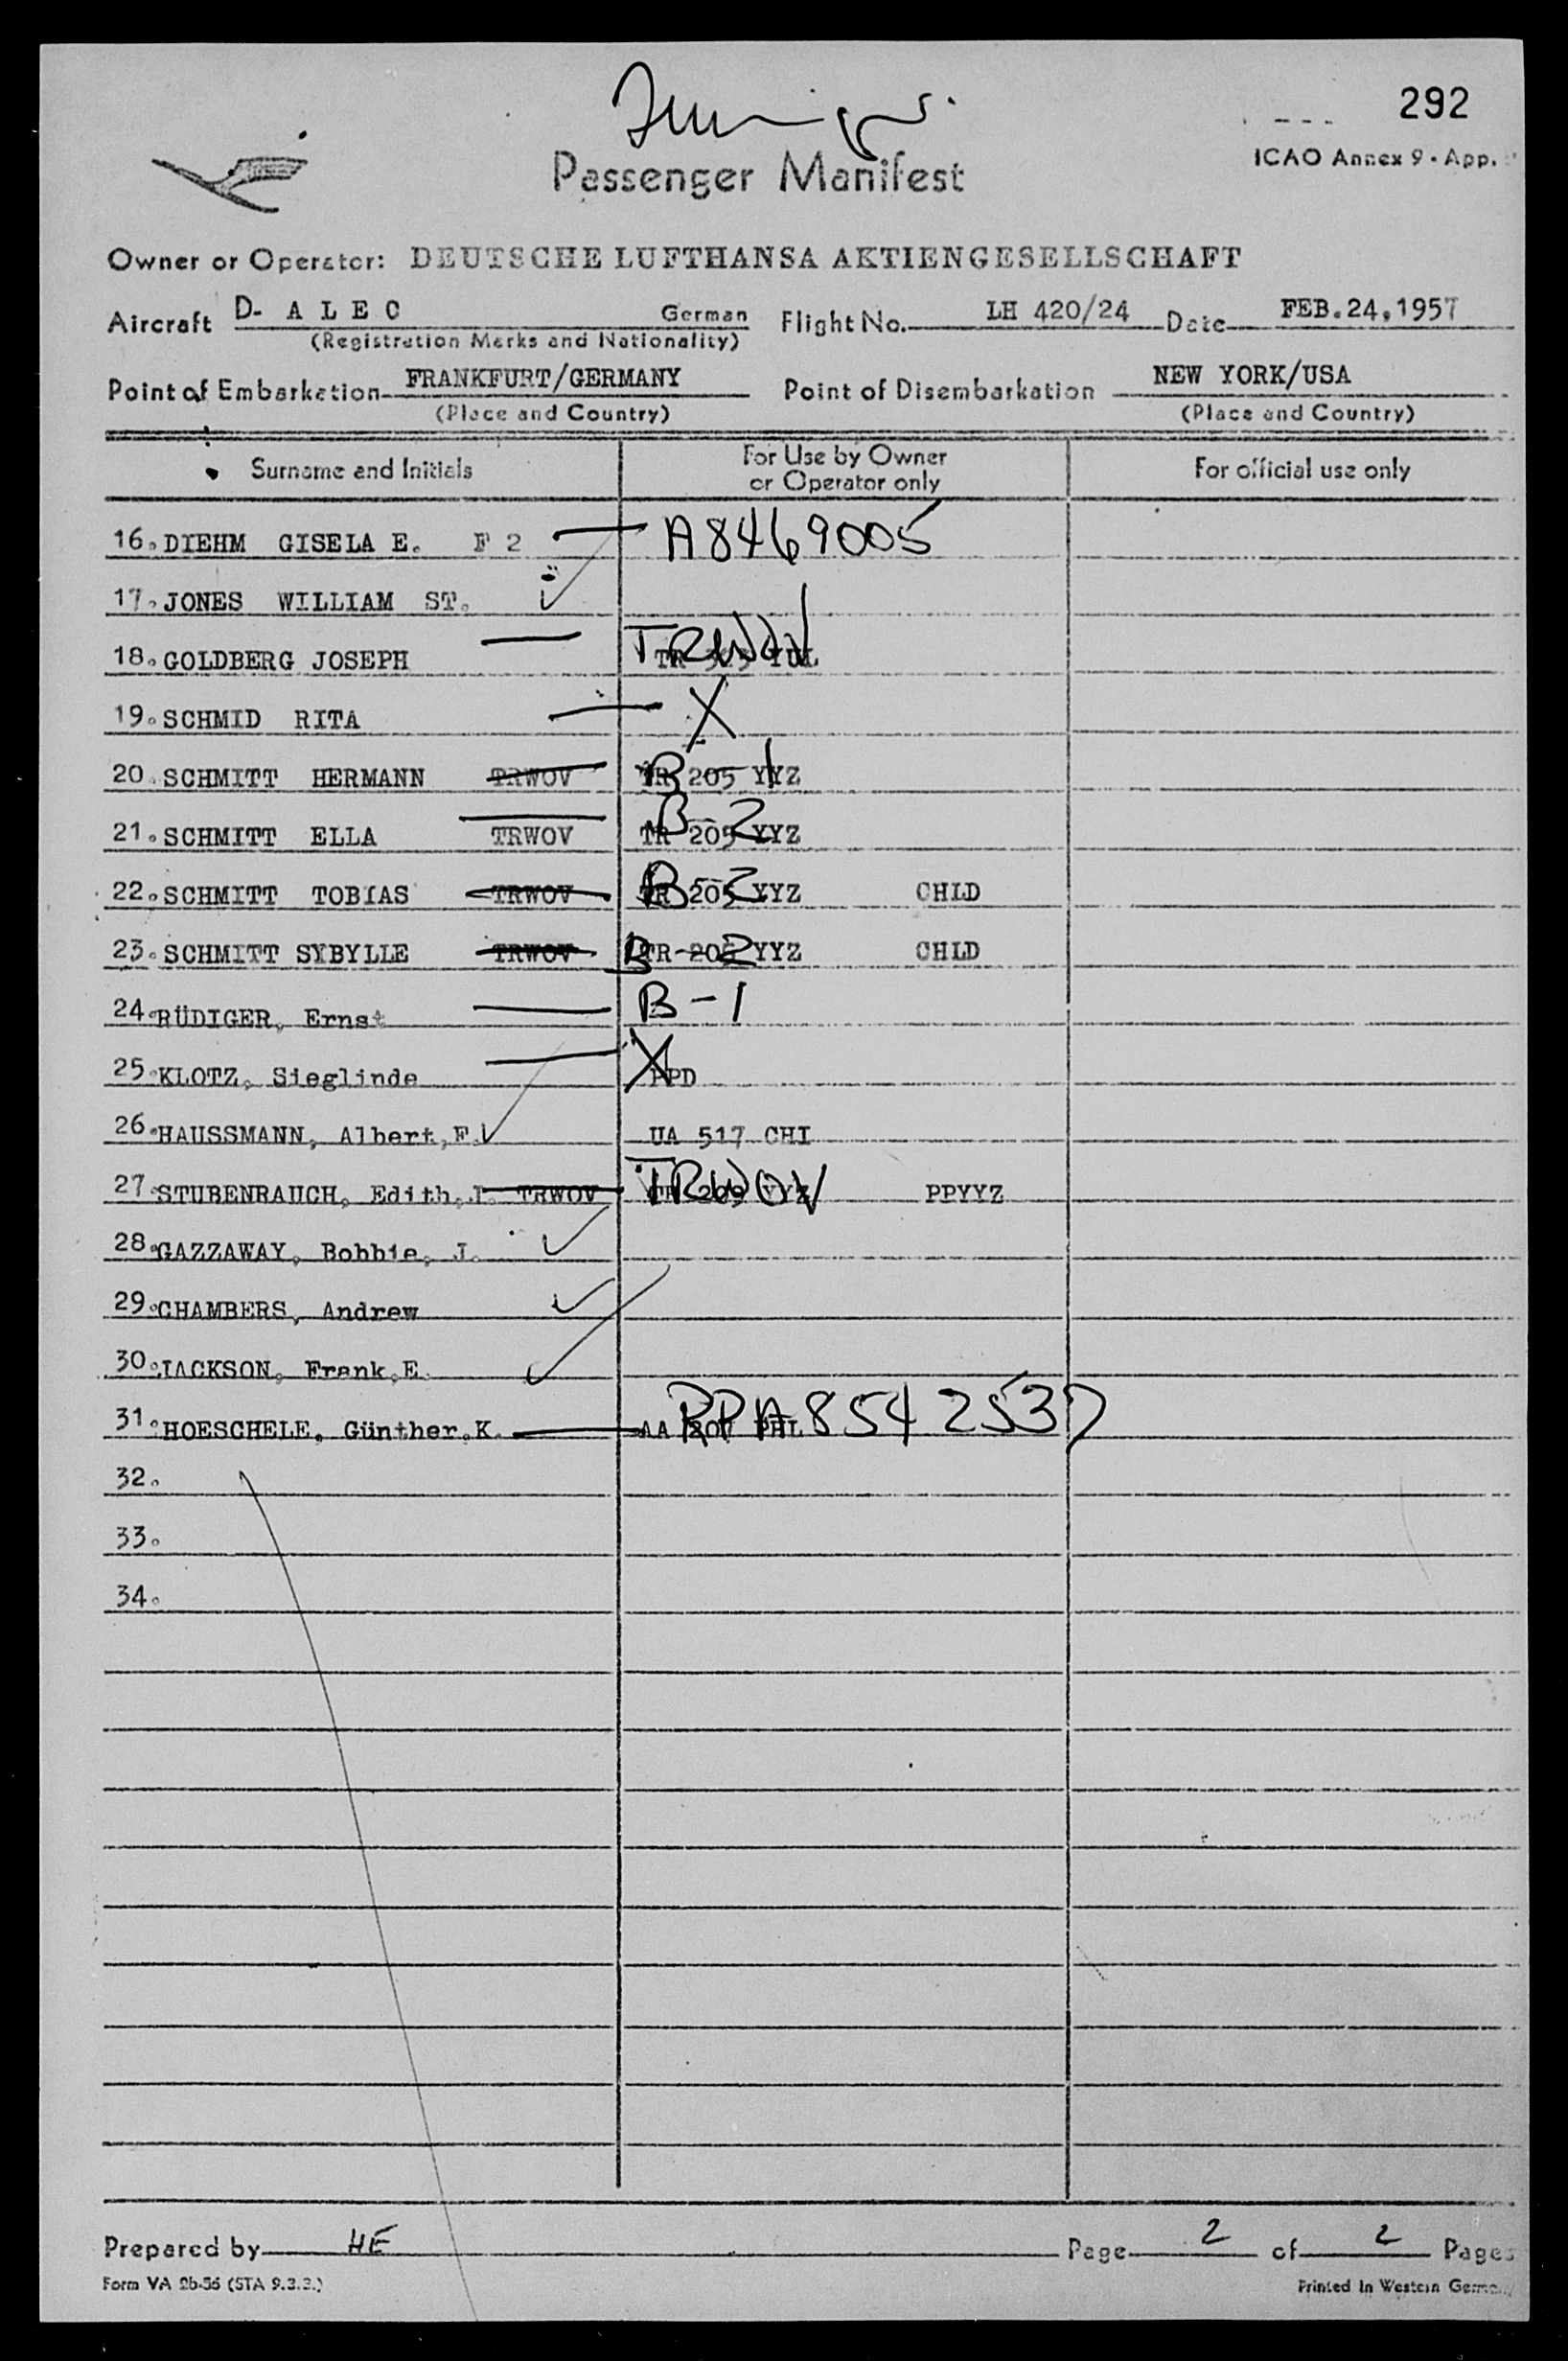 292
ICAO Annex 9 - App.
Passenger Manifest
Owner or Operator: DEUTSCHE LUFTHANSA AKTIENGESELLSCHAFT
Aircraft D- A L E C German Flight No. LH 420/24 Date FEB.24,1957
(Registration Marks and Nationality)
Point of Embarkation FRANKFURT/GERMANY Point of Disembarkation NEW YORK/USA
(Place and Country) (Place and Country)
Surname and Initials For Use by Owner or Operator only For official use only
16. DIEHM GISELA E. F 2 A8469005
17. JONES WILLIAM ST.
18. GOLDBERG JOSEPH TRWOV TR YUL
19. SCHMID RITA X
20. SCHMITT HERMANN TRWOV TR 205 YYZ B-1
21. SCHMITT ELLA TRWOV TR 205 YYZ B-2
22. SCHMITT TOBIAS TRWOV TR 205 YYZ B-2 CHLD
23. SCHMITT SYBYLLE TRWOV TR 205 YYZ B-2 CHLD
24. RÜDIGER, Ernst B-1
25. KLOTZ, Sieglinde X PPD
26. HAUSSMANN, Albert,F. UA 517 CHI
27. STUBENRAUCH, Edith,I. TRWOV TRWOV PPYYZ
28. GAZZAWAY, Bobbie, J.
29. CHAMBERS, Andrew
30. JACKSON, Frank,E.
31. HOESCHELE, Günther,K. AA PHL RPA8542537
32.
33.
34.
Prepared by HE Page 2 of 2 Pages
Form VA 2b-56 (STA 9.3.3.) Printed in Western Germany